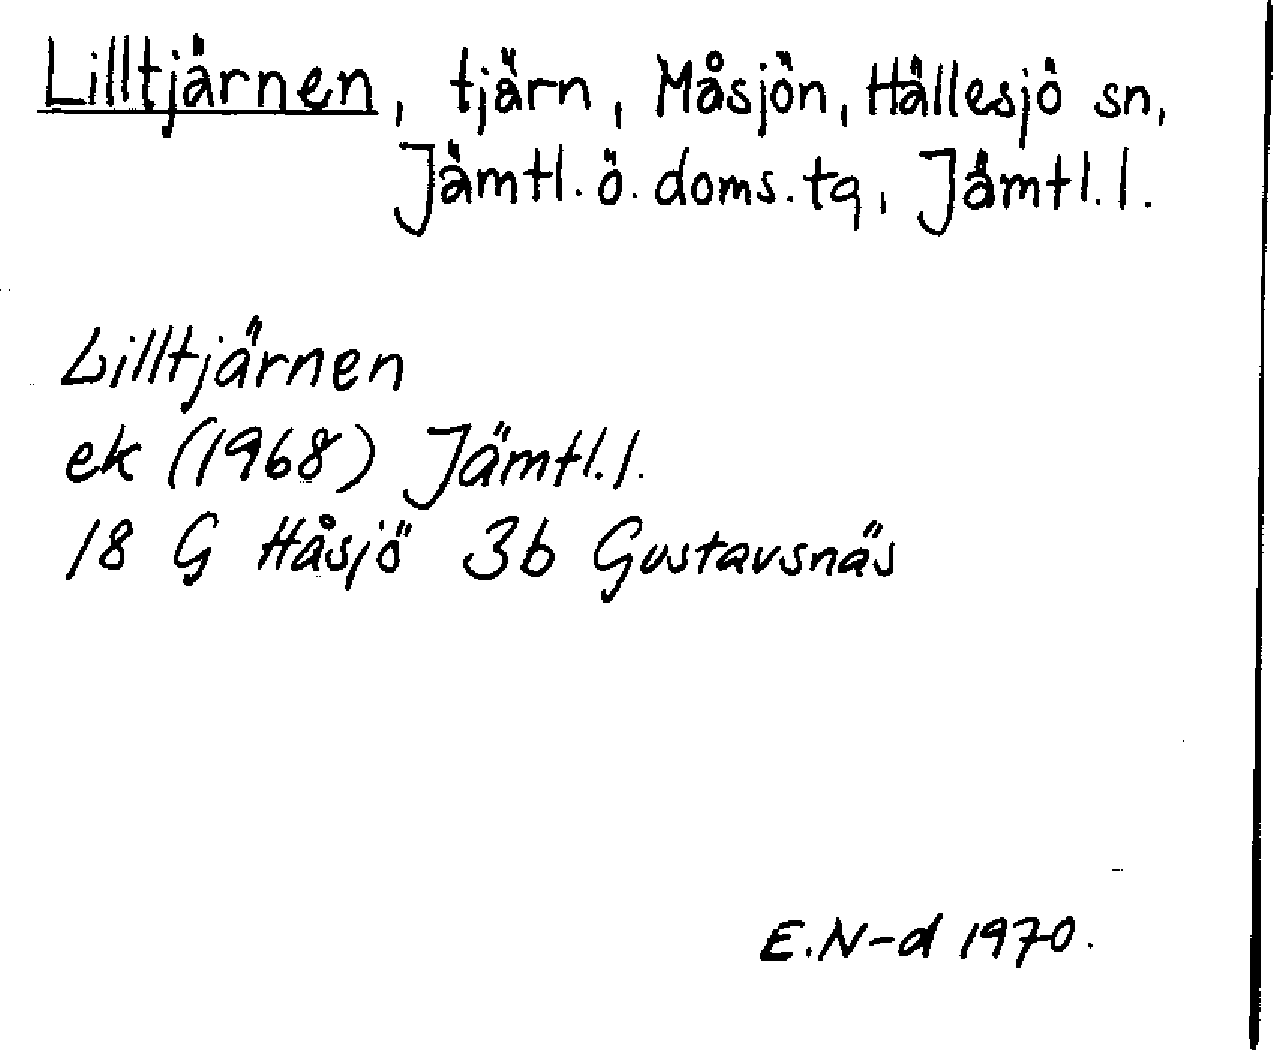 Lilltjärnen, tjärn, Måsjön, Hällesjö sn,
Jämtl. ö. doms. tg, Jämtl. l.
Lilltjärnen
ek (1968) Jämtl. l.
18 G Håsjö 3b Gustavsnäs
E. N-d 1970.